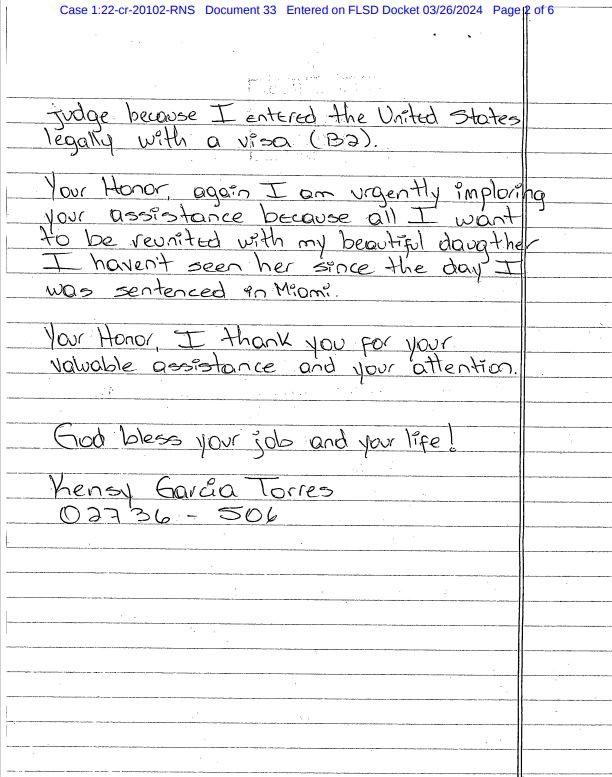 Case 1:22-cr-20102-RNS Document 33 Entered on FLSD Docket 03/26/2024 Page 2 of 6
judge because I entered the United States
legally with a visa (B2).
Your Honor, again I am urgently imploring
your assistance because all I want
to be reunited with my beautiful daugther
I haven't seen her since the day I
was sentenced in Miami.
Your Honor, I thank you for your
valuable assistance and your attention.
God bless your job and your life!
Kensy Garcia Torres
02736 - 506